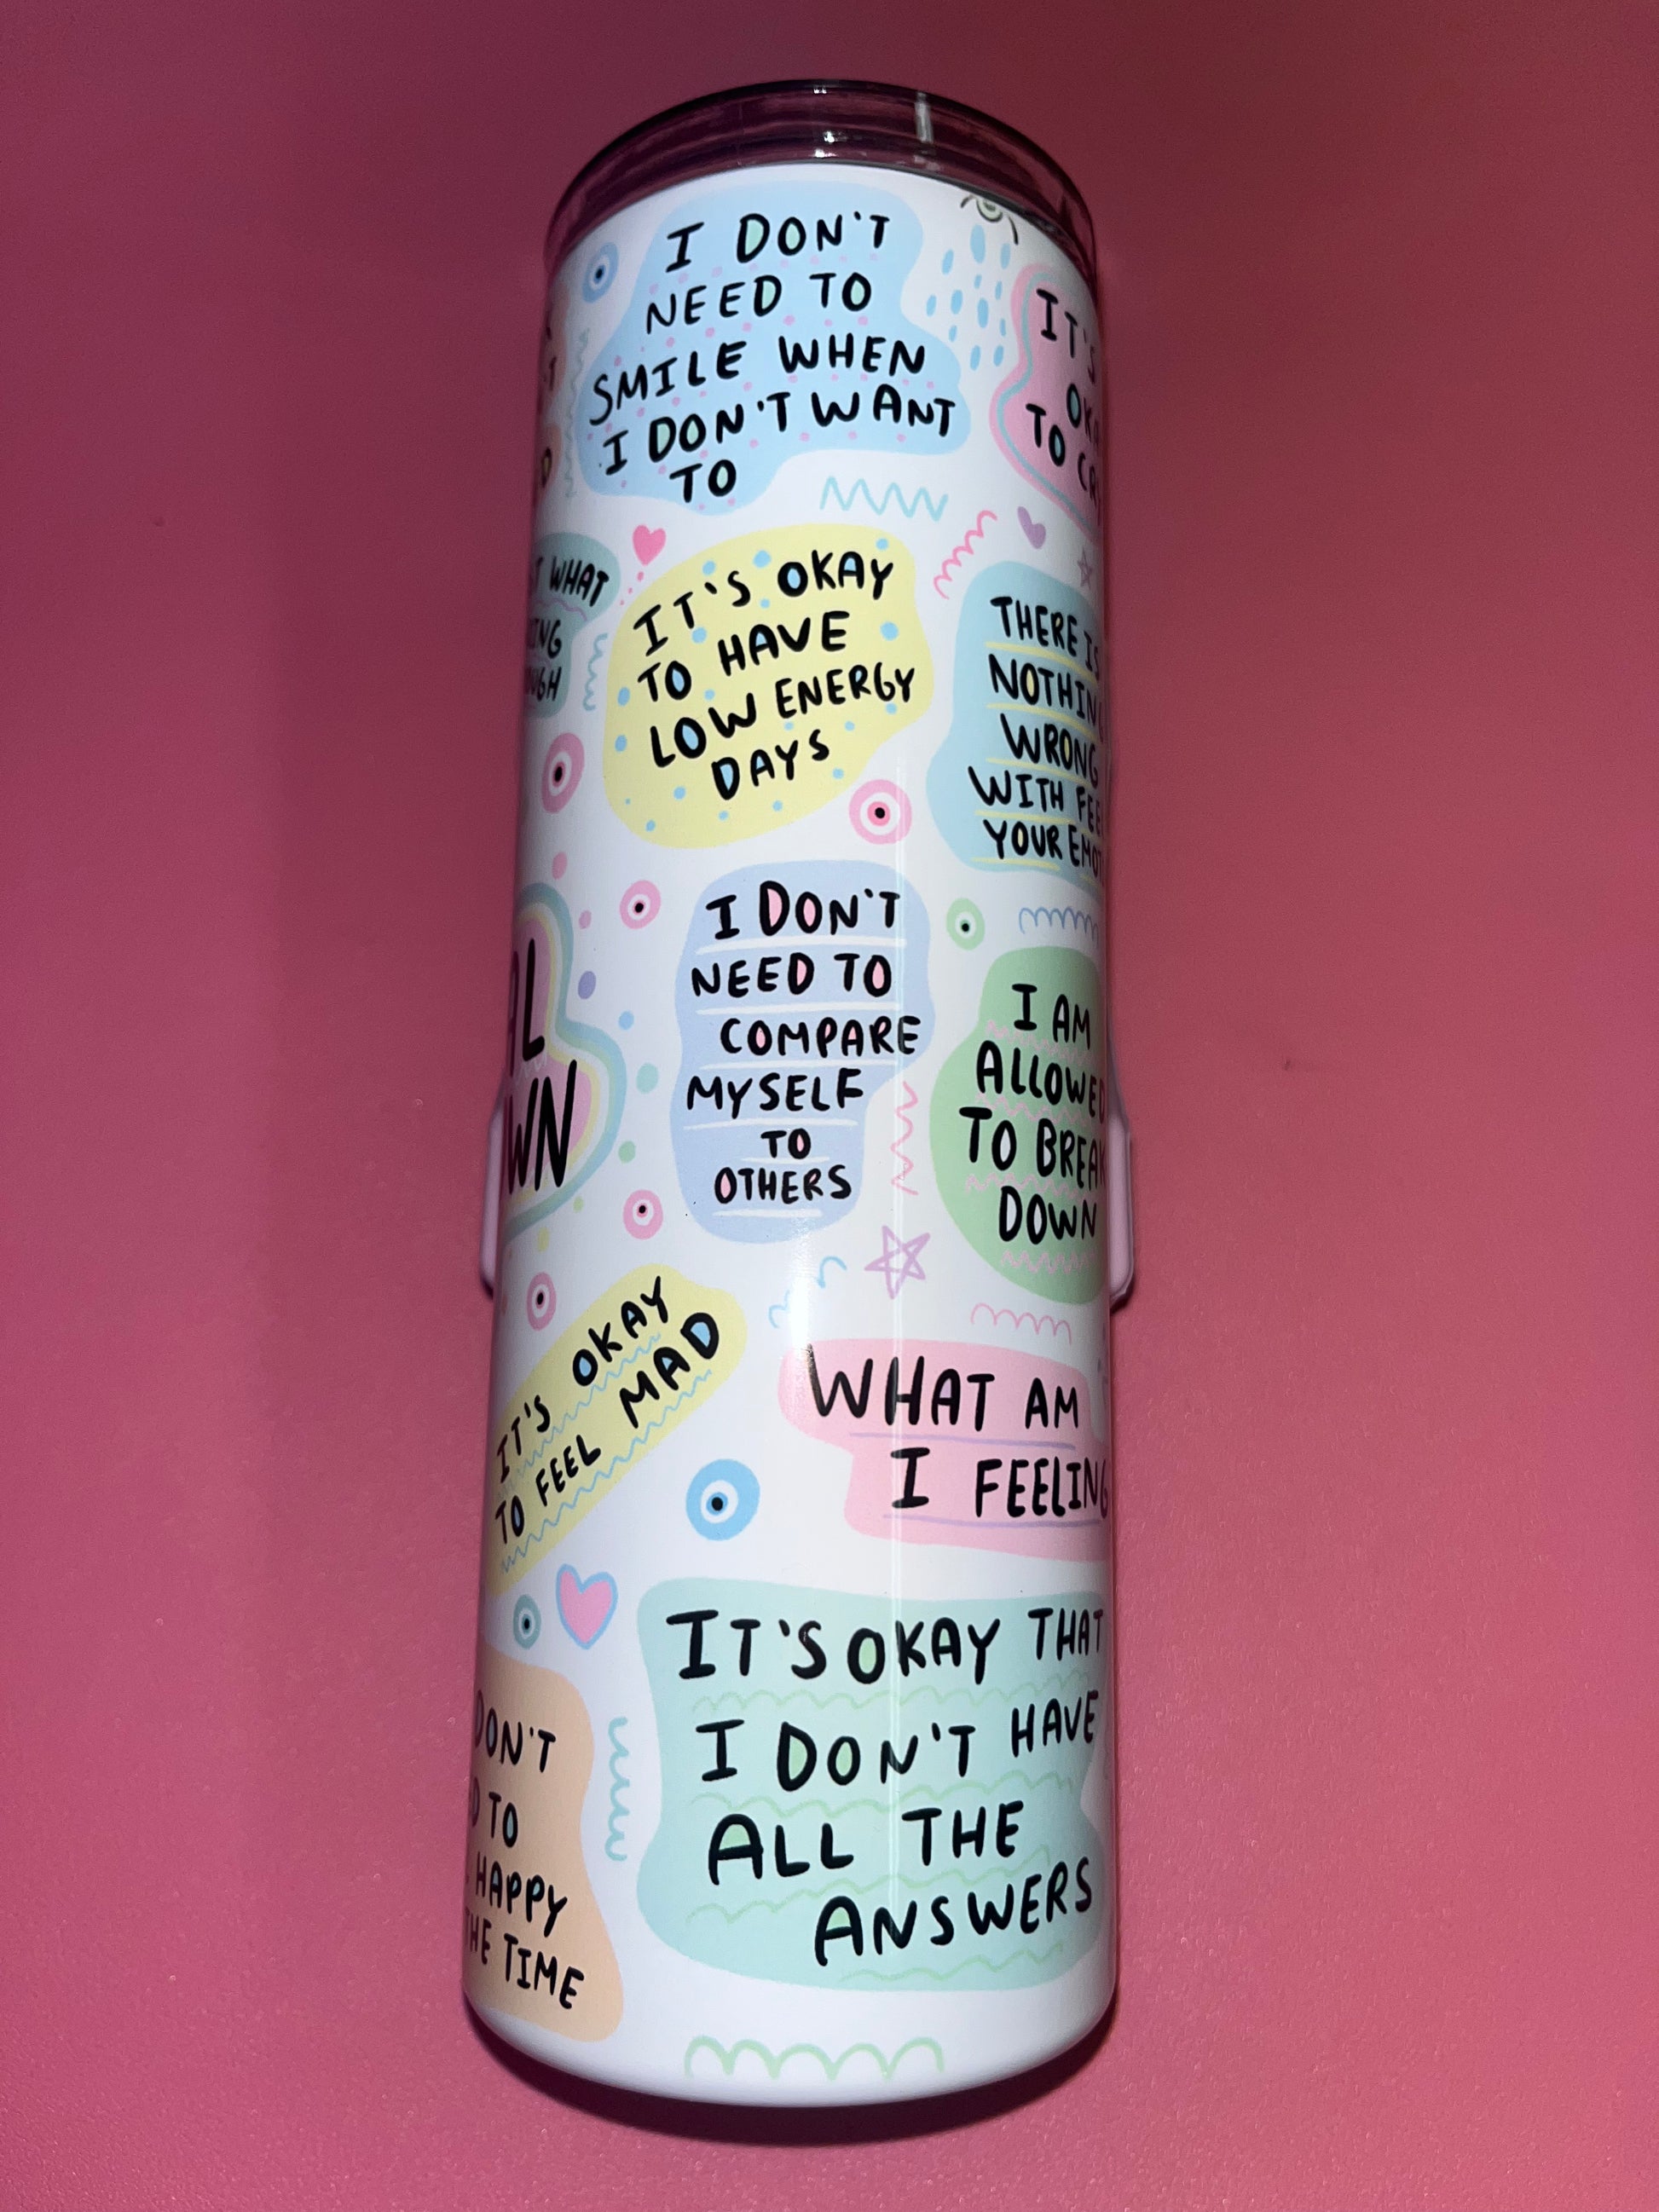 I DON'T
NEED TO
SMILE WHEN
I DON'T WANT
TO
IT'S
TO
WHAT
IT'S OKAY
TO HAVE
LOW ENERGY
DAYS
THERE IS
NOTHING
WRONG
WITH
YOUR
I DON'T
NEED TO
COMPARE
MYSELF
TO
OTHERS
I AM
ALLOWED
TO BREAK
DOWN
IT'S OKAY
TO FEEL MAD
WHAT AM
I FEELING
IT'S OKAY THAT
I DON'T HAVE
ALL THE
ANSWERS
DON'T
TO
HAPPY
THE TIME